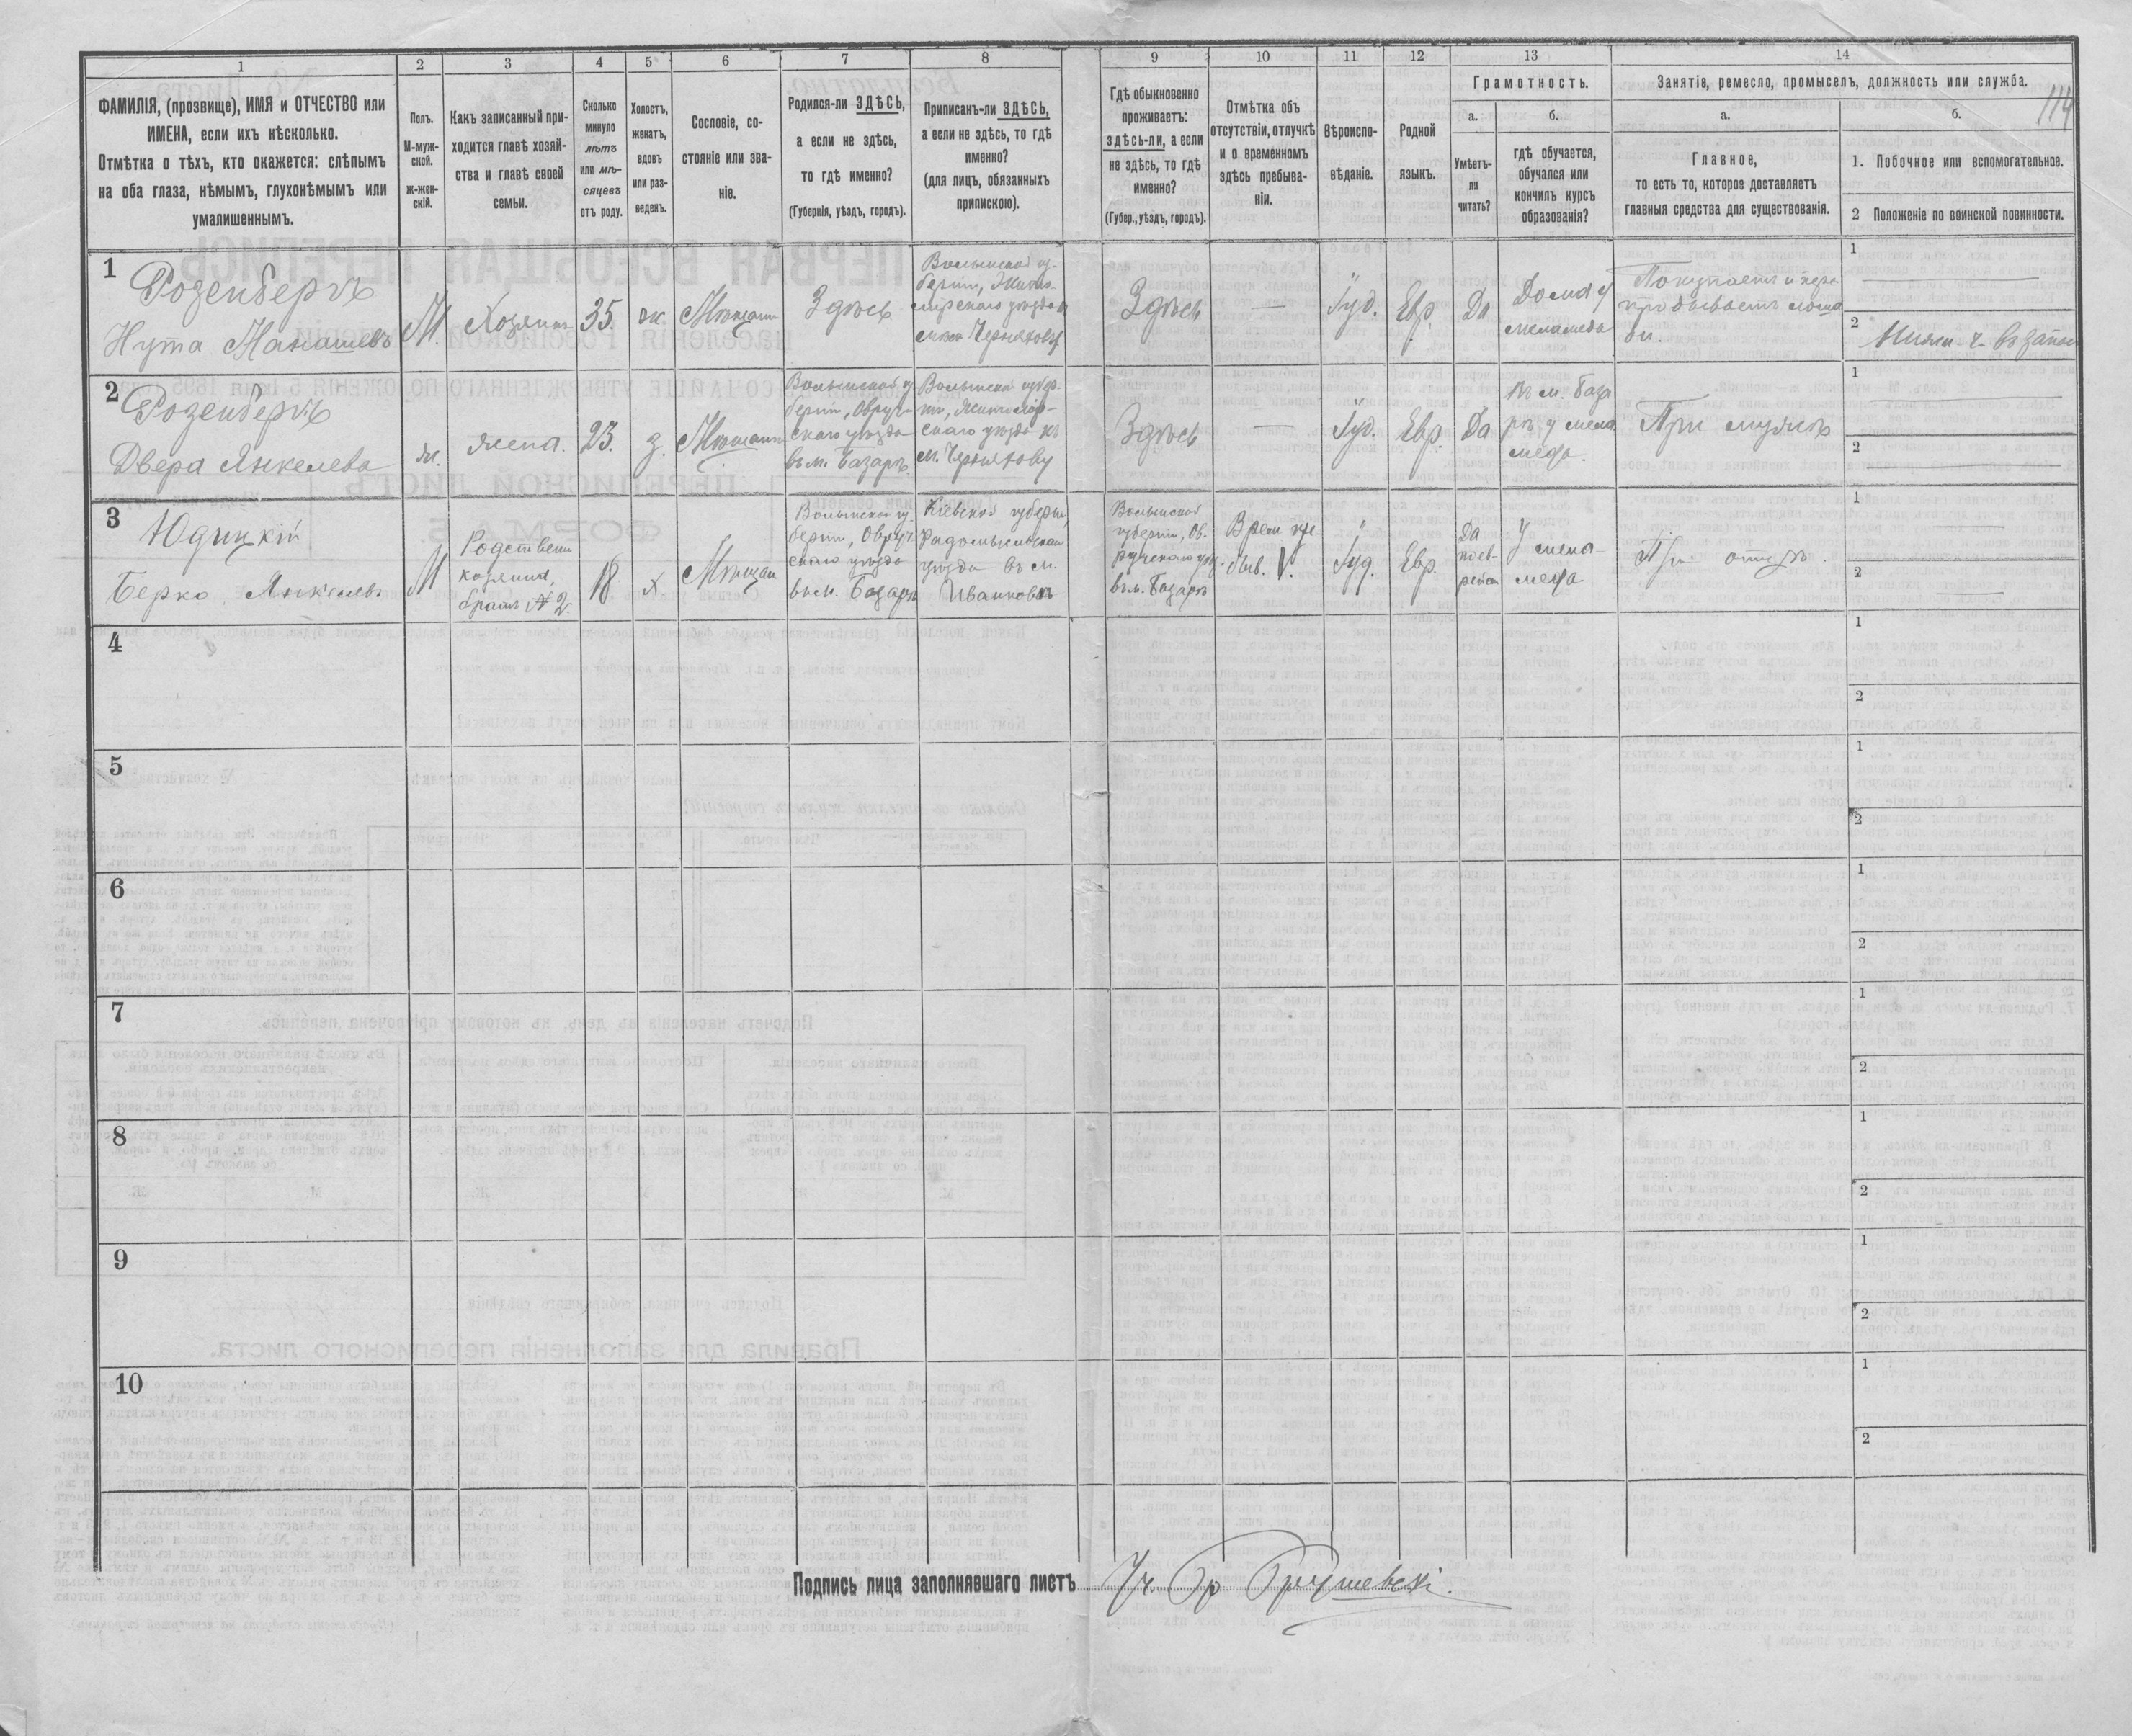 1 2 3 4 5 6 7 8 9 10 11 12 13 14
ФАМИЛІЯ, (прозвище), ИМЯ и ОТЧЕСТВО или
ИМЕНА, если ихъ нѣсколько.
Отмѣтка о тѣхъ, кто окажется: слѣпымъ
на оба глаза, нѣмымъ, глухонѣмымъ или
умалишеннымъ.
Полъ.
М-муж-
ской.
ж-жен-
скій.
Какъ записанный при-
ходится главѣ хозяй-
ства и главѣ своей
семьи.
Сколько
минуло
лѣтъ
или мѣ-
сяцевъ
отъ роду.
Холостъ,
женатъ,
вдовъ
или раз-
веденъ.
Сословіе, со-
стояніе или зва-
ніе.
Родился-ли ЗДѢСЬ,
а если не здѣсь,
то гдѣ именно?
(Губернія, уѣздъ, городъ).
Приписанъ-ли ЗДѢСЬ,
а если не здѣсь, то гдѣ
именно?
(для лицъ, обязанныхъ
припискою).
Гдѣ обыкновенно
проживаетъ:
здѣсь-ли, а если
не здѣсь, то гдѣ
именно?
(Губер., уѣздъ, городъ).
Отмѣтка объ
отсутствіи, отлучкѣ
и о временномъ
здѣсь пребыва-
ніи.
Вѣроиспо-
вѣданіе.
Родной
языкъ.
Грамотность.
а.
Умѣетъ-
ли
читать?
б.
гдѣ обучается,
обучался или
кончилъ курсъ
образованія?
Занятіе, ремесло, промыселъ, должность или служба.
114
а.
Главное,
то есть то, которое доставляетъ
главныя средства для существованія.
б.
1. Побочное или вспомогательное.
2 Положеніе по воинской повинности.
1
Розенбергъ
Нута Манашевъ
М.
Хозяинъ
35.
ж
Мѣщан
Здѣсь
Волынской гу-
берніи, Жито-
мірскаго уѣзда
Черняхову
Здѣсь
—
Іуд.
Евр.
Да
Дома у
меламеда
Покупаетъ и пере-
продываетъ лоша
ди.
1
2
2
Розенбергъ
Двера Янкелева
ж.
жена.
23.
з.
Мѣщан
Волынской гу
берніи, Овруч-
скаго уѣзда
въ м. Базарѣ.
Волынской губер-
ніи, Житомір-
скаго уѣзда къ
м. Черняхову
Здѣсь
—
Іуд.
Евр.
Да
Въ м. База
рѣ у мела
меда.
При мужѣ
1
2
3
Юдицкій
Берко Янкелевъ
М
Родствени
хозяина,
братъ № 2.
18
х
Мѣщан
Волынской гу-
берніи, Овруч
скаго уѣзда
въ м. Базарѣ
Кіевской губерніи,
Радомысльскаго
уѣзда въ м.
Иванковъ
Волынской
губерніи, Ов-
ручскаго уѣз.
въ м. Базарѣ
Врем. пре-
быв. V.
Іуд.
Евр.
Да
по ев-
рейски
У мела-
меда
При отцѣ.
1
2
4
1
2
5
1
2
6
1
2
7
1
2
8
1
2
9
1
2
10
1
2
Подпись лица заполнявшаго листъ